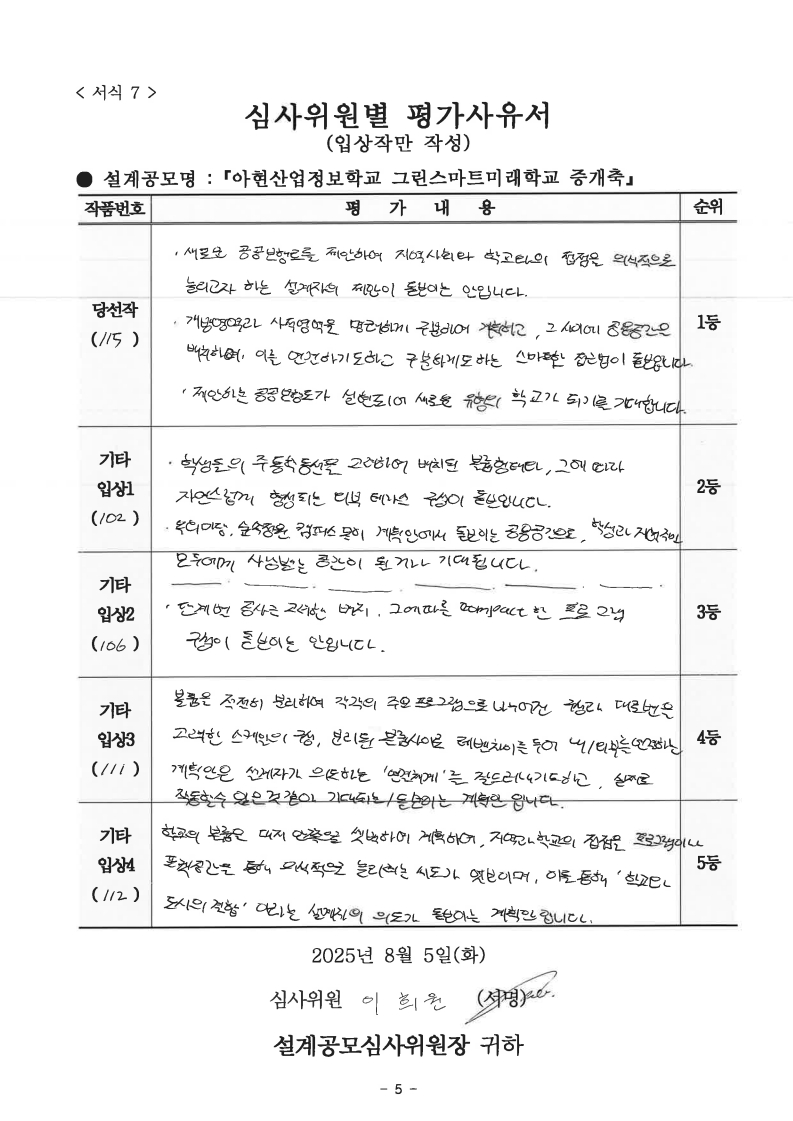 < 서식 7 >
심사위원별 평가사유서
(입상작만 작성)
● 설계공모명 : 『아현산업정보학교 그린스마트미래학교 증개축』
작품번호 평 가 내 용 순위
당선작
(115)
· 새로운 공공보행로를 제안하여 지역사회와 학교와의 접점을 의식적으로
늘리고자 하는 설계자의 제안이 돋보이는 안입니다.
· 개방영역과 사적영역을 명확하게 구분하여 계획하고, 그 사이에 공용공간을
배치하여, 이를 연결하기도하고 구분하게도하는 스마트한 접근법이 돋보입니다.
· 제안하는 공공보행로가 실현되어 새로운 유형의 학교가 되기를 기대합니다.
1등
기타
입상1
(102)
· 학생들의 주동선을 고려하여 배치된 볼륨형태와, 그에 따라
자연스럽게 형성되는 티벳 테라스 구성이 돋보입니다.
· 숲속정원 캠퍼스 몰이 계획안에서 돋보이는 공용공간으로, 학생과 지역주민
모두에게 사랑받는 공간이 될거라 기대됩니다.
2등
기타
입상2
(106)
· 단계별 공사를 고려한 배치, 그에따른 compact 한 프로그램
구성이 돋보이는 안입니다.
3등
기타
입상3
(111)
볼륨을 적절히 분리하여 각각의 주요 프로그램으로 나누어진 구성과 대로변을
고려한 스케일의 구성, 분리된 볼륨사이로 레벨차이를 두어 내/외부를 연결하는
계획안은 설계자가 의도하는 '연결체계'를 잘드러내기도하고, 실제로
작동할수 있을것 같아 기대되는/돋보이는 계획안 입니다.
4등
기타
입상4
(112)
학교의 볼륨을 대지 안쪽으로 셋백하여 계획하여, 지역과 학교의 접점을 프로그램이나
포켓공간을 통해 의식적으로 늘리려는 시도가 엿보이며, 이를 통해 '학교와
도시의 전환' 이라는 설계자의 의도가 돋보이는 계획안 입니다.
5등
2025년 8월 5일(화)
심사위원 이 희 원 (서명)
설계공모심사위원장 귀하
- 5 -